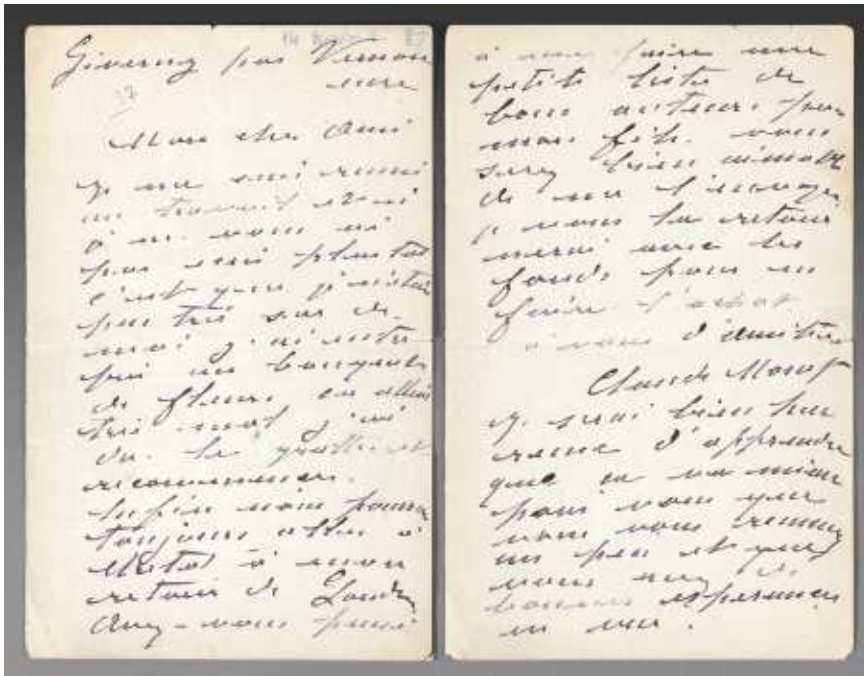 Giverny par Vernon
eure
Mon cher Ami
je me suis remis
au travail et si
je ne vous ai
pas écrit plus tot
c'est que je n'étais
pas très sur de
moi j'ai entre
pris un bouquet
de fleurs ca allait
très mal j'ai
du le gratter et
recommencer.
Enfin nous pourrons
toujours aller à
Etretat à mon
retour de Londres
Avez-vous pensé
à me faire une
petite liste de
bons auteurs pour
mon fils. vous
serez bien aimable
de me l'envoyer
je vous la retour
nerai avec les
fonds pour en
faire l'achat.
à vous d'amitié
Claude Monet
je serai bien heu
reux d'apprendre
que ca va mieux
pour vous que
vous vous remuez
un peu et que
vous avez de
bonnes espérances
en vue.